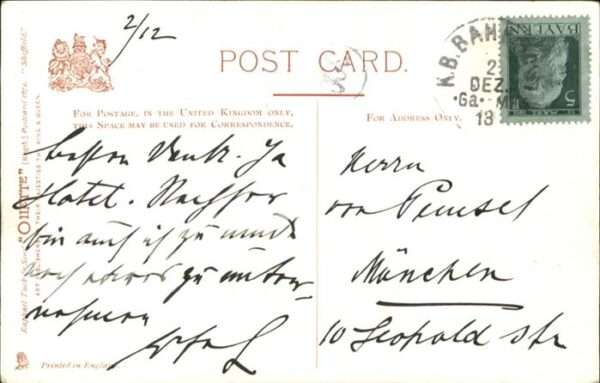 2/12
POST CARD.
K.B.BAH
2
DEZ.
Ga. M
13
BAYERN
5
FOR POSTAGE, IN THE UNITED KINGDOM ONLY,
THIS SPACE MAY BE USED FOR CORRESPONDENCE.
FOR ADDRESS ONLY.
besten Dank. Ja
Hotel. Nachher
bin auch ich zu müde
noch etwas zu unter-
nehmen
Herrn
von Peusel
München
10 Leopold str
Raphael Tuck & Sons' "OILETTE" [Regd.] Postcard
Printed in England